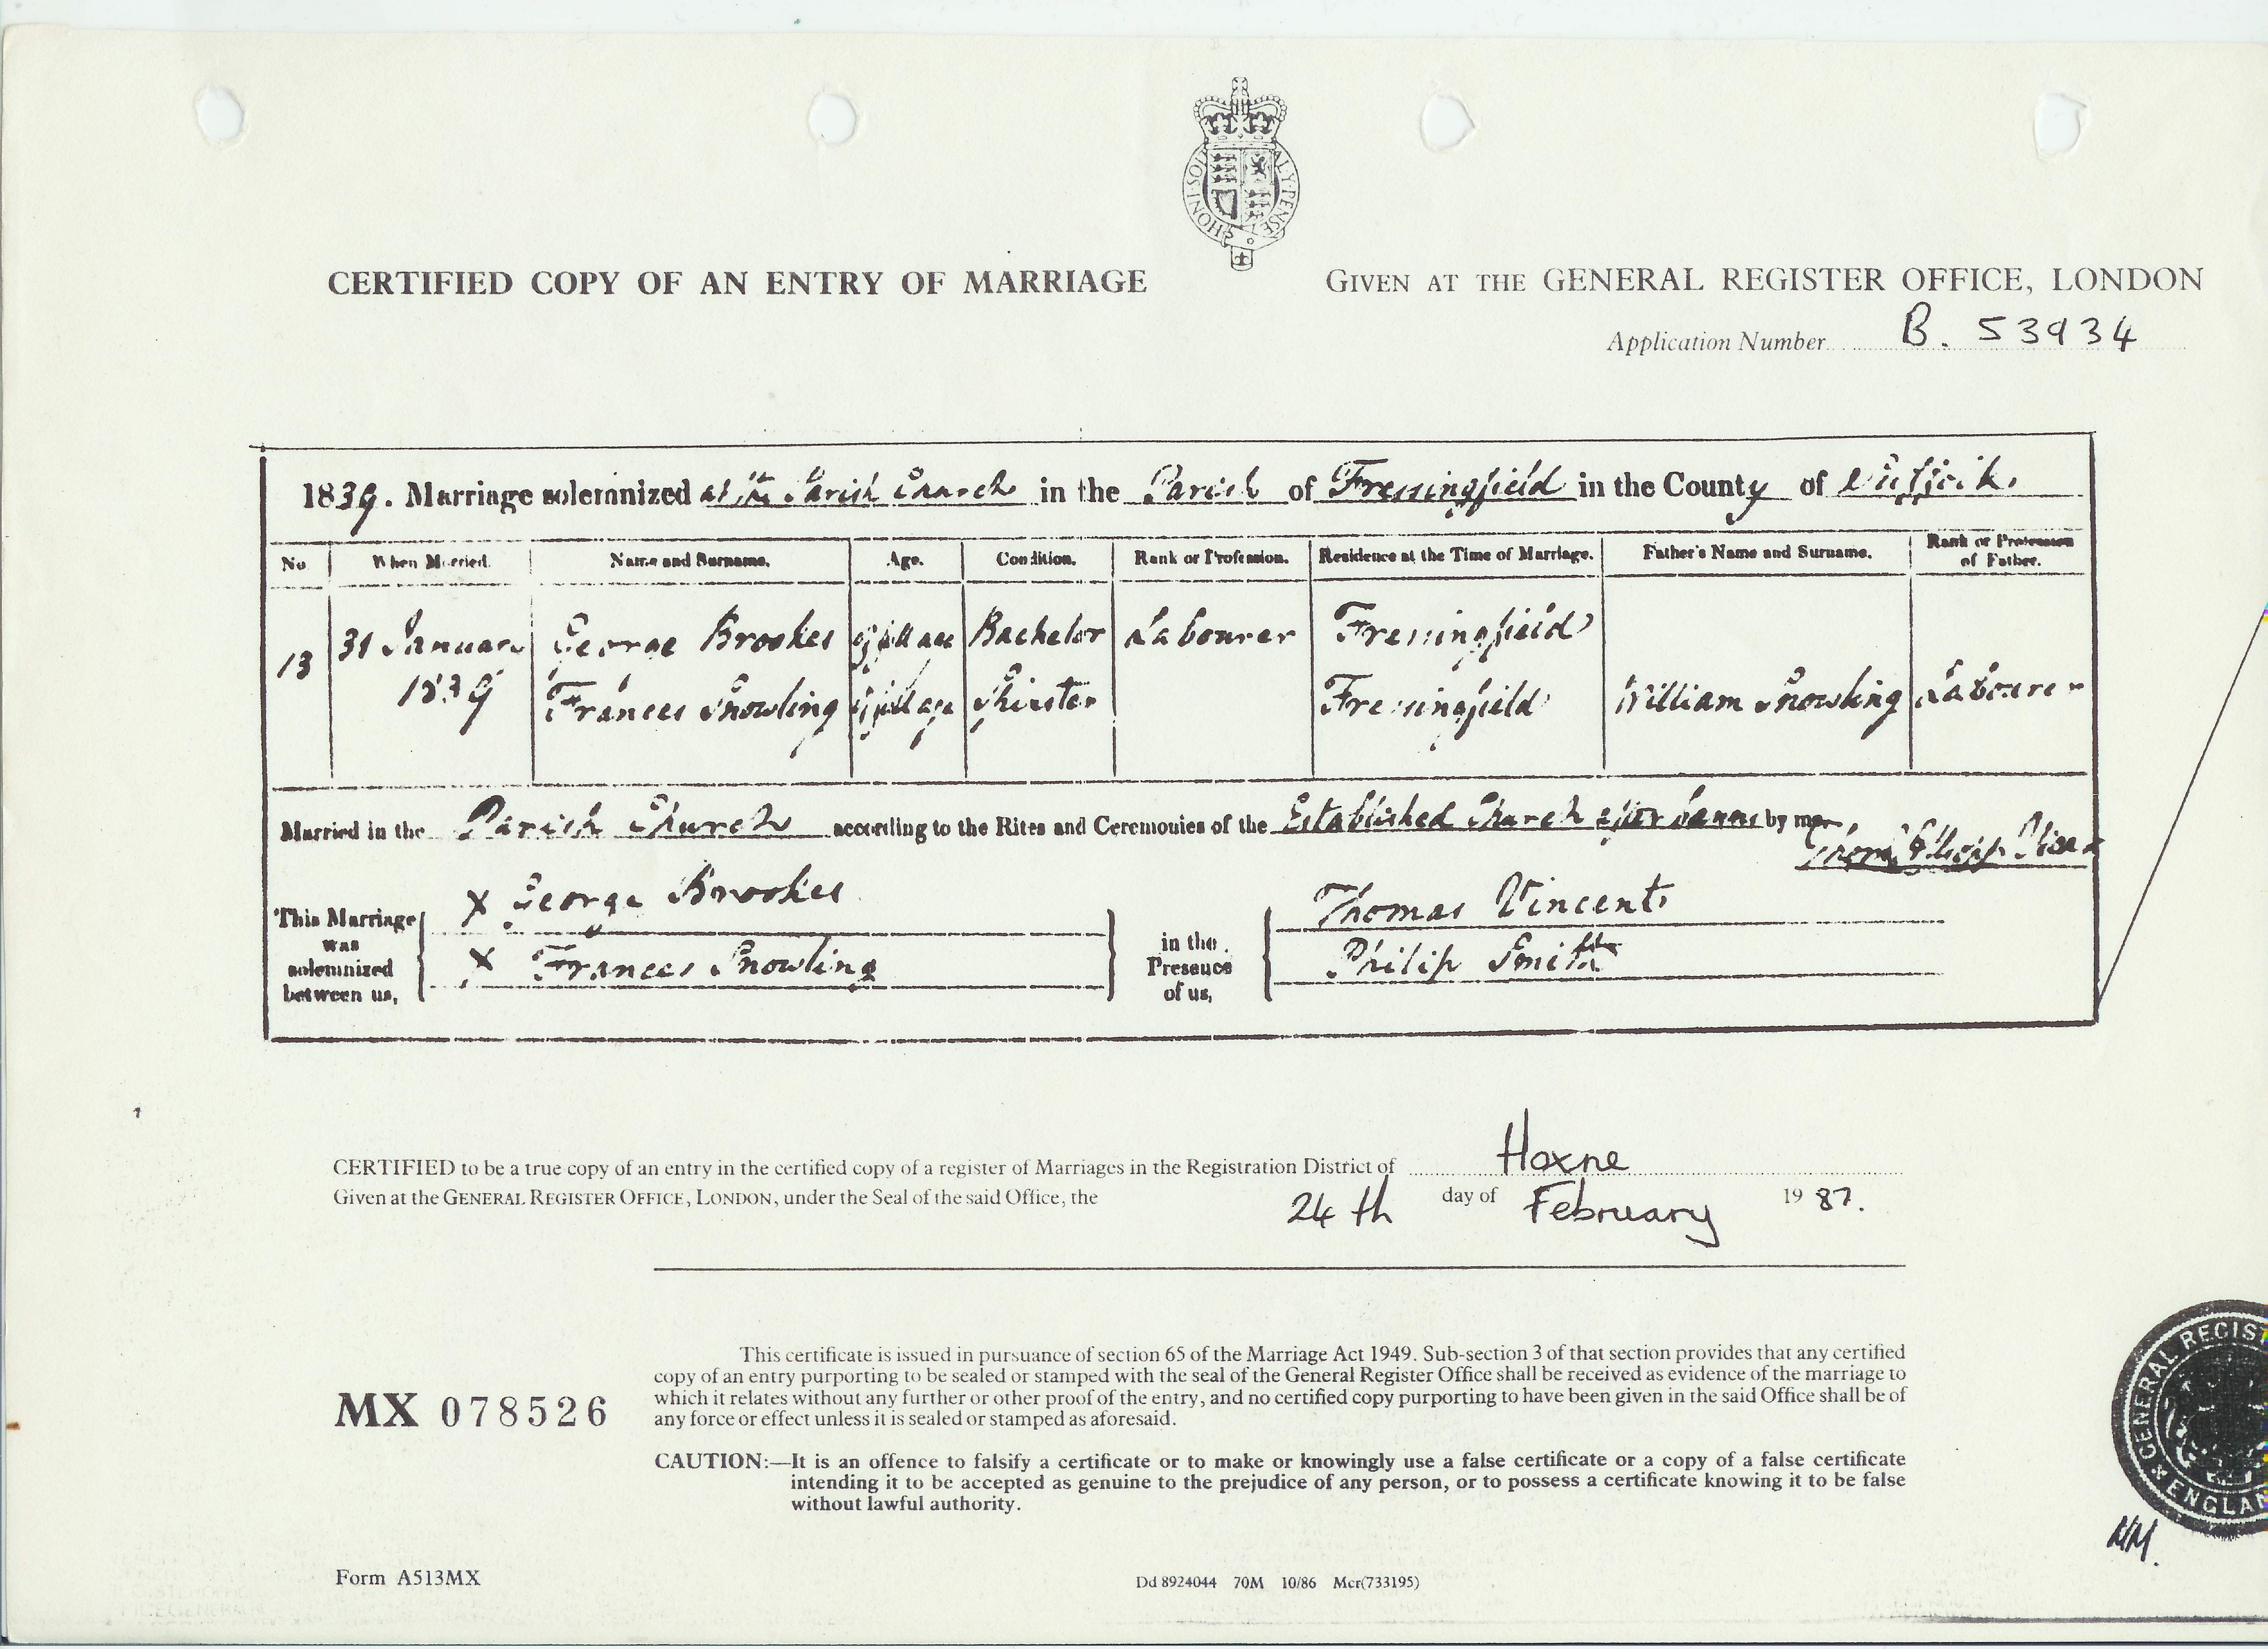 HONI·SOIT ALY·PENSE
CERTIFIED COPY OF AN ENTRY OF MARRIAGE
GIVEN AT THE GENERAL REGISTER OFFICE, LONDON
Application Number B. 53934
1839. Marriage solemnized at the Parish Church in the Parish of Fressingfield in the County of Suffolk.
No When Married. Name and Surname. Age. Condition. Rank or Profession. Residence at the Time of Marriage. Father's Name and Surname. Rank or Profession of Father.
13 31 January 1839 George Brookes of full age Bachelor Labourer Fressingfield
Frances Snowling of full age Spinster Fressingfield William Snowling Labourer
Married in the Parish Church according to the Rites and Ceremonies of the Established Church after banns by me,
This Marriage was solemnized between us,
X George Brookes
X Frances Snowling
in the Presence of us,
Thomas Vincent
Philip Smith
CERTIFIED to be a true copy of an entry in the certified copy of a register of Marriages in the Registration District of Hoxne
Given at the GENERAL REGISTER OFFICE, LONDON, under the Seal of the said Office, the 24th day of February 1987.
MX 078526
This certificate is issued in pursuance of section 65 of the Marriage Act 1949. Sub-section 3 of that section provides that any certified
copy of an entry purporting to be sealed or stamped with the seal of the General Register Office shall be received as evidence of the marriage to
which it relates without any further or other proof of the entry, and no certified copy purporting to have been given in the said Office shall be of
any force or effect unless it is sealed or stamped as aforesaid.
CAUTION:—It is an offence to falsify a certificate or to make or knowingly use a false certificate or a copy of a false certificate
intending it to be accepted as genuine to the prejudice of any person, or to possess a certificate knowing it to be false
without lawful authority.
GENERAL REGIST
ENGLAN
Form A513MX
Dd 8924044 70M 10/86 Mcr(733195)